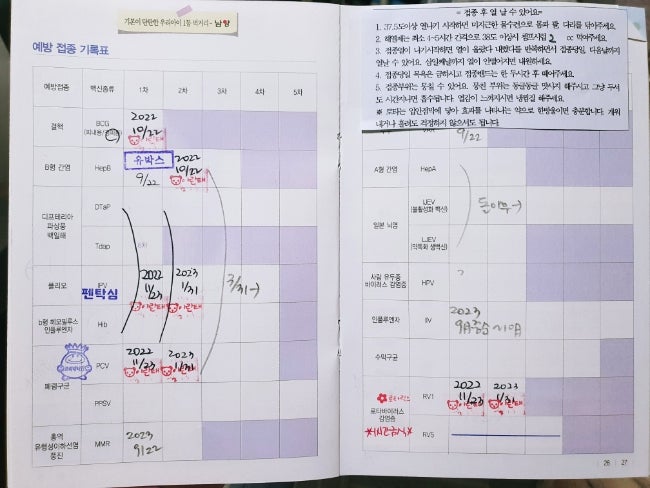 기본이 단단한 우리아이 1등 먹거리 - 남양
예방 접종 기록표
예방접종 백신종류 1차 2차 3차 4차 5차
결핵 BCG 2022 10/22
B형 간염 HepB 유박스 9/22 2022 10/22
디프테리아 파상풍 백일해 DTaP
Tdap
폴리오 IPV 2022 11/23 2023 1/31 3/31→
펜탁심
b형 헤모필루스 인플루엔자 Hib
폐렴구균 PCV 2022 11/23 2023 1/31
PPSV
홍역 유행성이하선염 풍진 MMR 2023 9/22
= 접종 후 열 날 수 있어요 =
1. 37.5도이상 열나기 시작하면 미지근한 물수건으로 몸과 팔, 다리를 닦아주세요.
2. 해열제는 최소 4-5시간 간격으로 38도 이상시 챔프시럽 2 cc 먹여주세요.
3. 접종열이 나기시작하면 열이 올랐다 내렸다를 반복하면서 접종당일, 다음날까지
열날 수 있어요. 삼일째날까지 열이 안떨어지면 내원하세요.
4. 접종당일 목욕은 금하시고 접종밴드는 한 두시간 후 떼어주세요.
5. 접종부위는 뭉칠 수 있어요. 뭉친 부위는 동글동글 맛사지 해주시고 그냥 두셔
도 시간지나면 흡수됩니다. 열감이 느껴지시면 냉찜질 해주세요.
※ 로타는 입안점막에 닿아 효과를 나타내는 약으로 한방울이면 충분합니다. 게워
내거나 흘려도 걱정하지 않으셔도 됩니다.
9/22
A형 간염 HepA
일본 뇌염 IJEV (불활성화 백신) 돌이후→
LJEV (약독화 생백신)
사람 유두종 바이러스 감염증 HPV
인플루엔자 IIV 2023
수막구균
로타릭스
로타바이러스 감염증 RV1 2022 11/23 2023 1/31
*1시간금식*
RV5
26 27